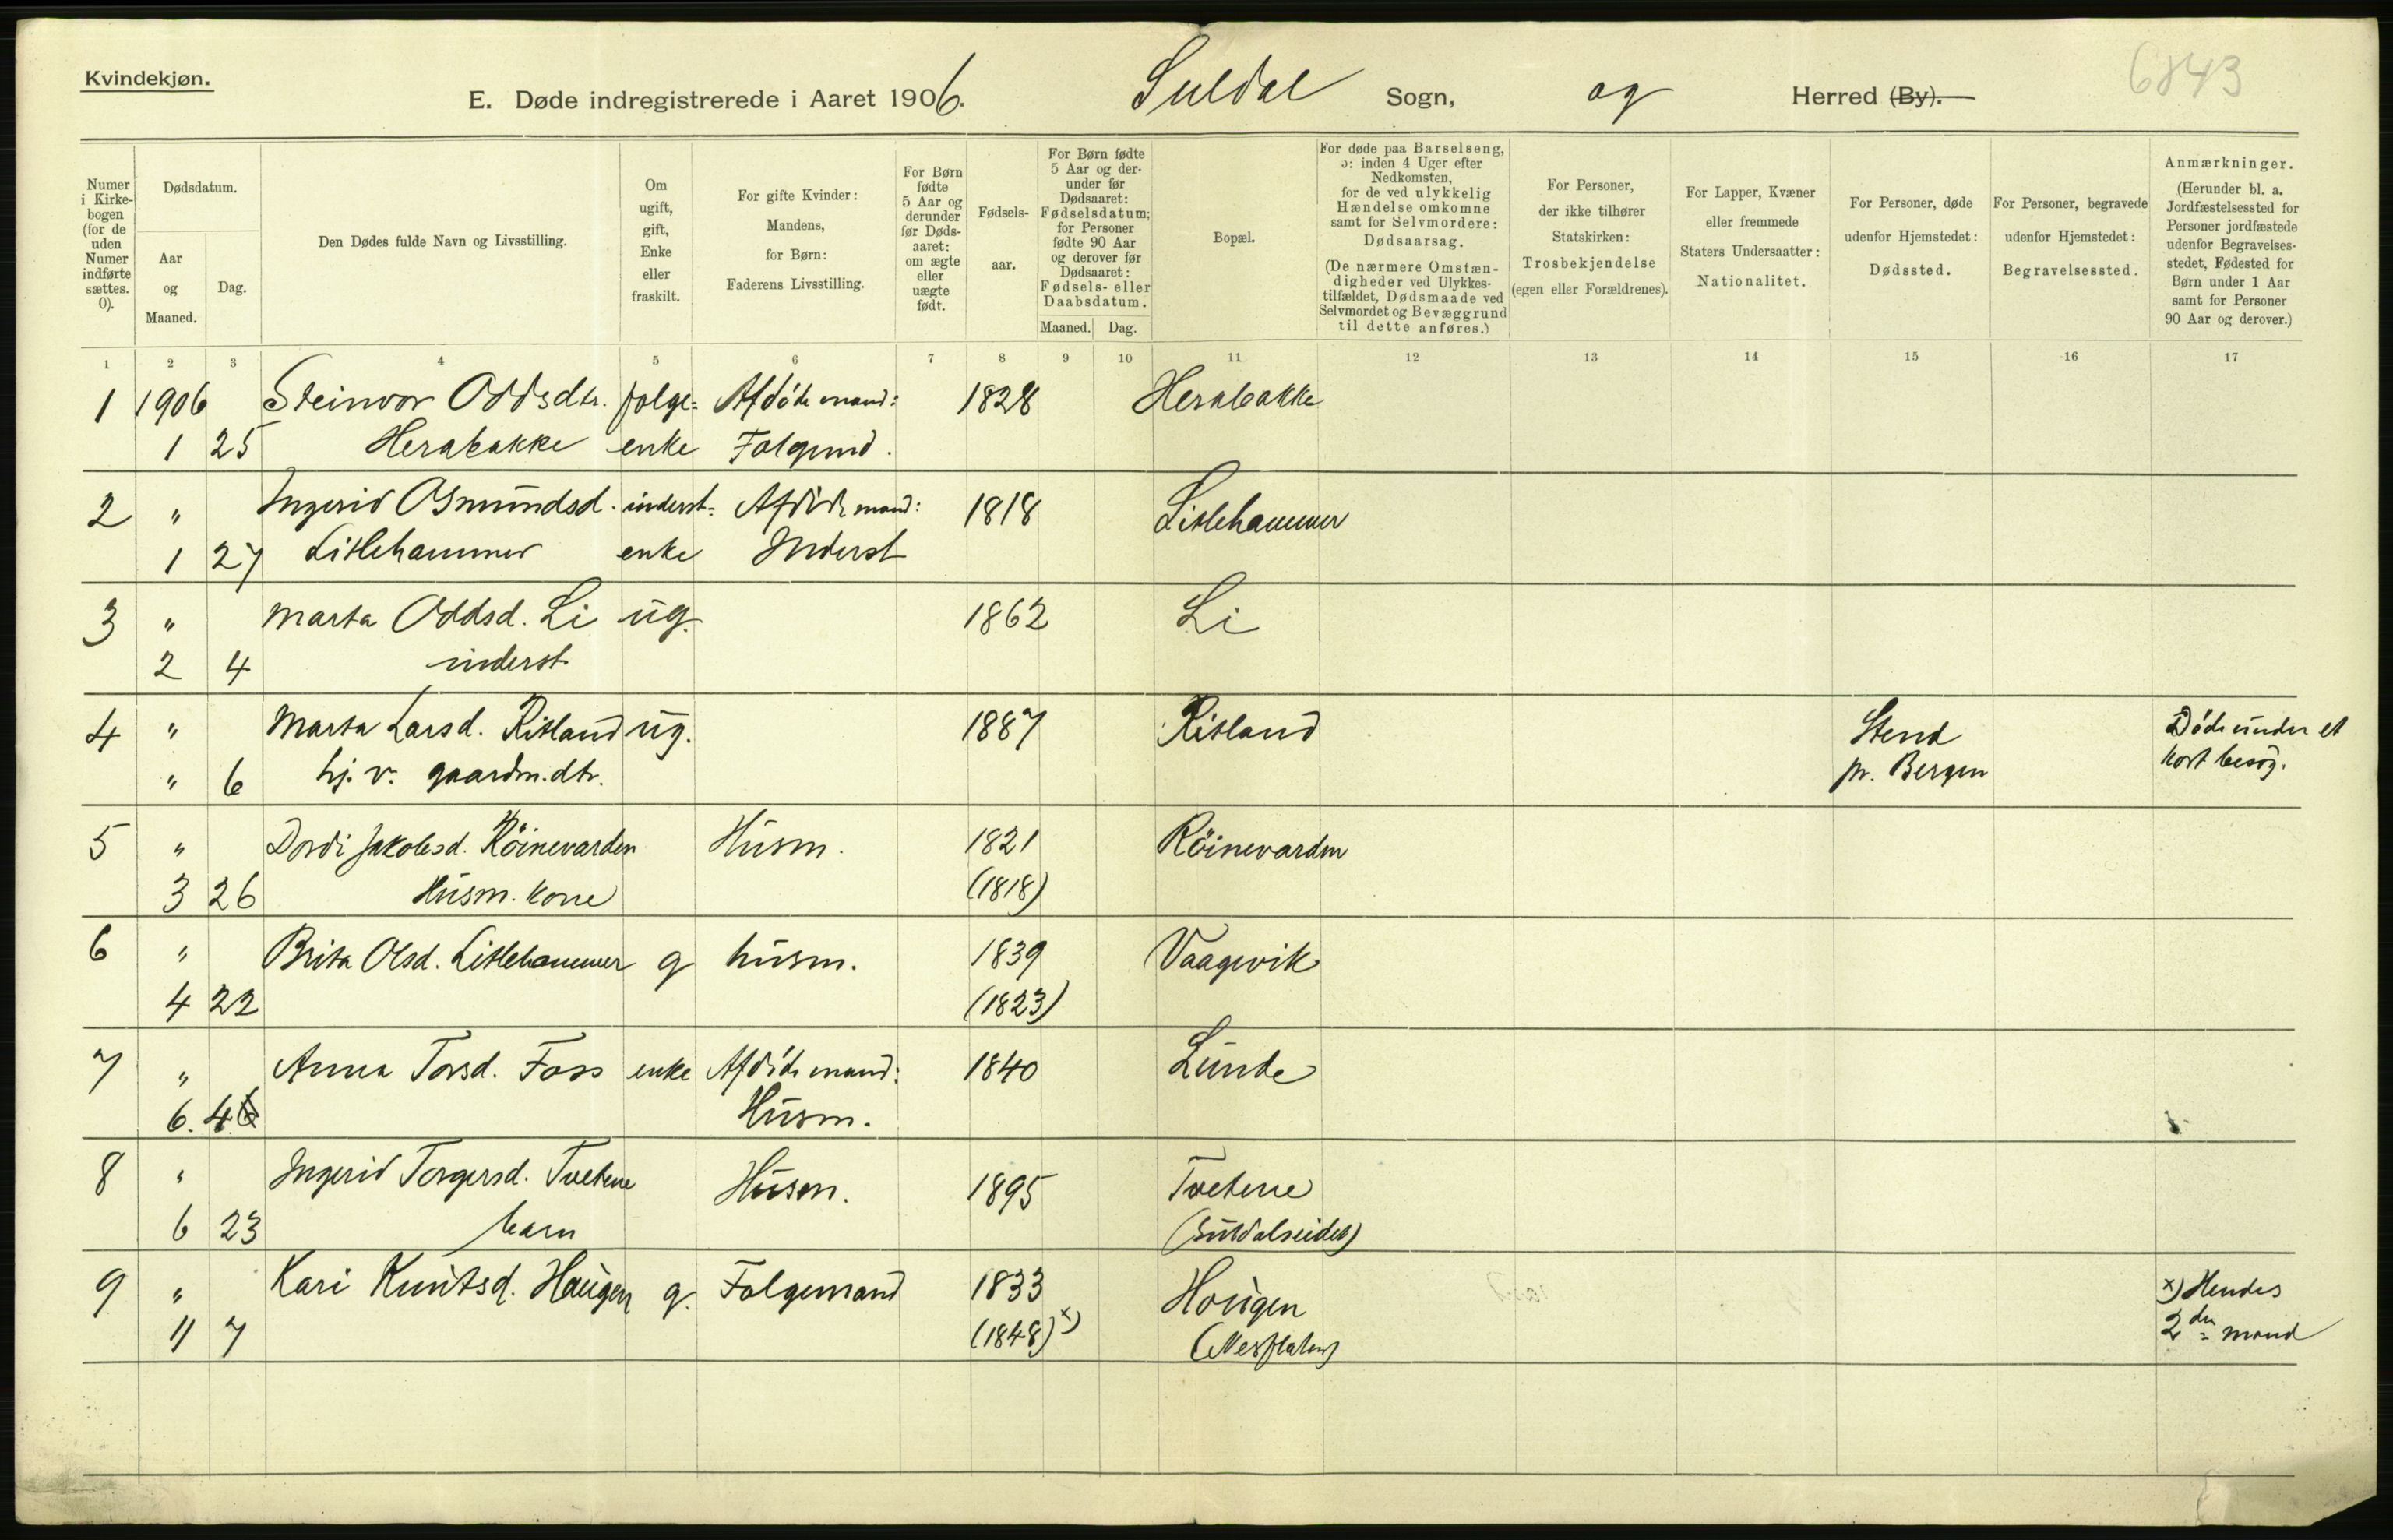 Kvindekjøn.
E. Døde indregistrerede i Aaret 1906. Suldal Sogn, og Herred (By).
6843
Numer i Kirke-bogen (for de uden Numer indførte sættes. 0).
Dødsdatum.
Aar og Maaned.
Dag.
Den Dødes fulde Navn og Livsstilling.
Om ugift, gift, Enke eller fraskilt.
For gifte Kvinder: Mandens, for Børn: Faderens Livsstilling.
For Børn fødte 5 Aar og derunder før Døds-aaret: om ægte eller uægte født.
Fødsels-aar.
For Børn fødte 5 Aar og der-under før Dødsaaret: Fødselsdatum; for Personer fødte 90 Aar og derover før Dødsaaret: Fødsels- eller Daabsdatum.
Maaned. Dag.
Bopæl.
For døde paa Barselseng, ɔ: inden 4 Uger efter Nedkomsten, for de ved ulykkelig Hændelse omkomne samt for Selvmordere: Dødsaarsag. (De nærmere Omstæn-digheder ved Ulykkes-tilfældet, Dødsmaade ved Selvmordet og Bevæggrund til dette anføres.)
For Personer, der ikke tilhører Statskirken: Trosbekjendelse (egen eller Forældrenes).
For Lapper, Kvæner eller fremmede Staters Undersaatter: Nationalitet.
For Personer, døde udenfor Hjemstedet: Dødssted.
For Personer, begravede udenfor Hjemstedet: Begravelsessted.
Anmærkninger. (Herunder bl. a. Jordfæstelsessted for Personer jordfæstede udenfor Begravelses-stedet, Fødested for Børn under 1 Aar samt for Personer 90 Aar og derover.)
1 2 3 4 5 6 7 8 9 10 11 12 13 14 15 16 17
1 1906 Steinvor Oddsdtr. folge= Afdøde mand: 1828 Herabakke
1 25 Herabakke enke Folgemd.
2 " Ingerid Osmundsd. inderst= Afdøde mand: 1818 Litlehammer
1 27 Litlehammer enke Inderst
3 " Marta Oddsd. Li ug. 1862 Li
2 4 inderst
4 " Marta Larsd. Ritland ug. 1887 Ritland Stend Døde under et
" 6 hj. v. gaardm.dtr. pr. Bergen kort besøg.
5 " Dordi Jakobsd. Röinevarden Husm. 1821 Röinevarden
3 26 Husm. kone (1818)
6 " Brita Olsd. Litlehammer g husm. 1839 Vaagevik
4 22 (1823)
7 " Anna Torsd. Foss enke Afdøde mand: 1840 Lunde
6. 4. Husm.
8 " Ingerid Torgersd. Tvetene Husm. 1895 Tvetene
6 23 barn (Suldalseidet)
9 " Kari Knutsd. Haugen g. Folgemand 1833 Haugen x) Hendes
11 7 (1848) x) (Nesflaten) 2den mand